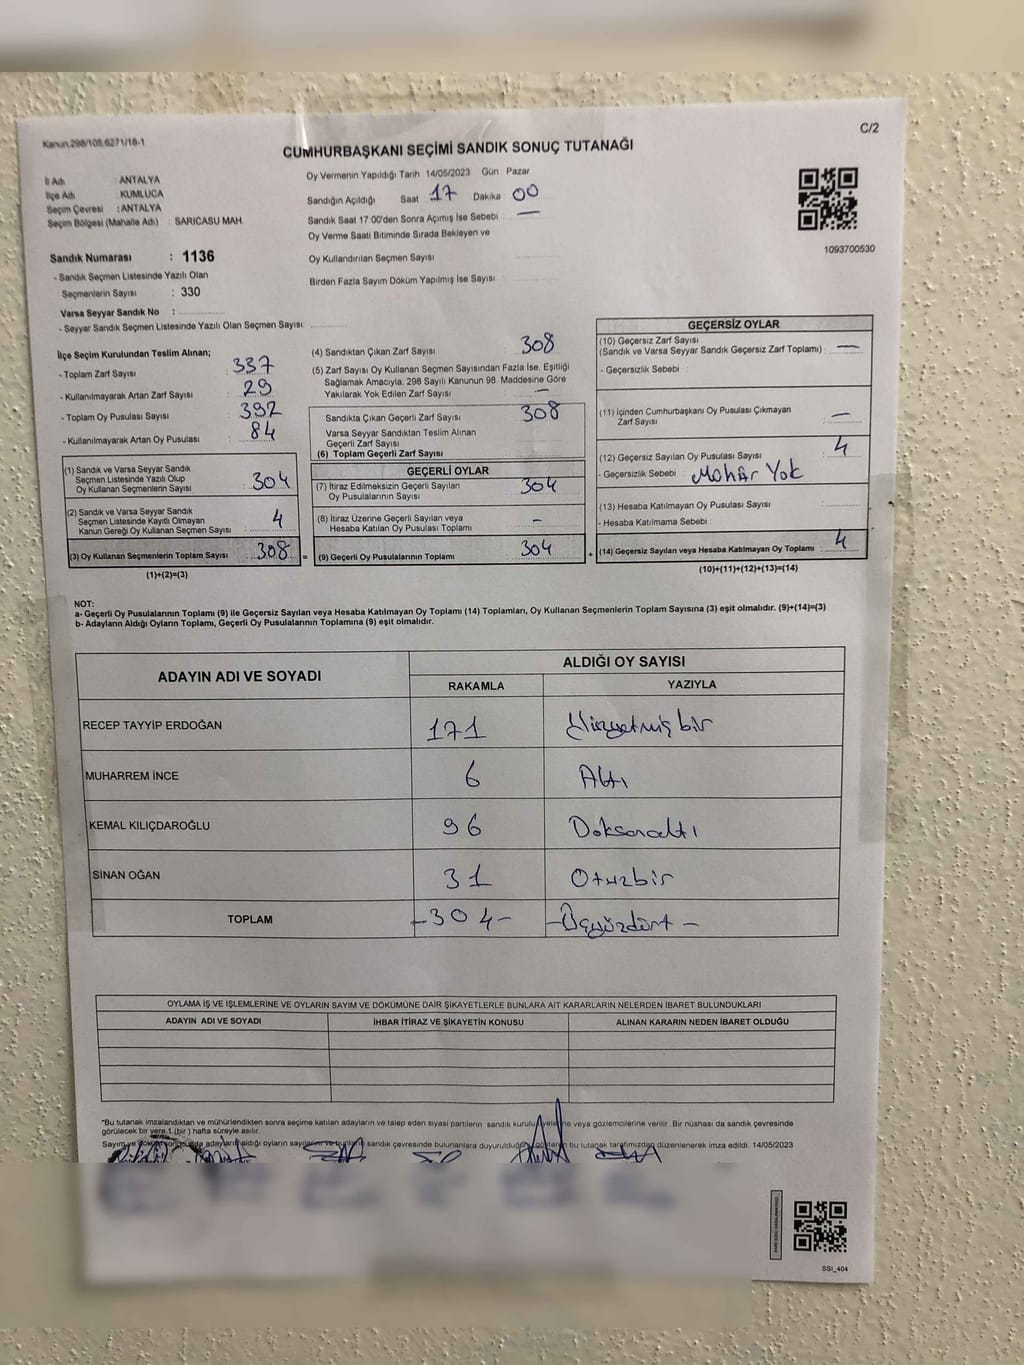 Kanun,298/108,6271/18-1
C/2
CUMHURBAŞKANI SEÇİMİ SANDIK SONUÇ TUTANAĞI
İl Adı : ANTALYA
İlçe Adı : KUMLUCA
Seçim Çevresi : ANTALYA
Seçim Bölgesi (Mahalle Adı) : SARICASU MAH.
Sandık Numarası : 1136
- Sandık Seçmen Listesinde Yazılı Olan
Seçmenlerin Sayısı : 330
Varsa Seyyar Sandık No :
- Seyyar Sandık Seçmen Listesinde Yazılı Olan Seçmen Sayısı:
Oy Vermenin Yapıldığı Tarih 14/05/2023 Gün Pazar
Sandığın Açıldığı Saat 17 Dakika 00
Sandık Saat 17:00'den Sonra Açımış İse Sebebi —
Oy Verme Saati Bitiminde Sırada Bekleyen ve
Oy Kullandırılan Seçmen Sayısı
Birden Fazla Sayım Döküm Yapılmış İse Sayısı
1093700530
İlçe Seçim Kurulundan Teslim Alınan;
- Toplam Zarf Sayısı 337
- Kullanılmayarak Artan Zarf Sayısı 29
- Toplam Oy Pusulası Sayısı 392
- Kullanılmayarak Artan Oy Pusulası 84
(1) Sandık ve Varsa Seyyar Sandık
Seçmen Listesinde Yazılı Olup
Oy Kullanan Seçmenlerin Sayısı 304
(2) Sandık ve Varsa Seyyar Sandık
Seçmen Listesinde Kayıtlı Olmayan
Kanun Gereği Oy Kullanan Seçmen Sayısı 4
(3) Oy Kullanan Seçmenlerin Toplam Sayısı 308 =
(1)+(2)=(3)
(4) Sandıktan Çıkan Zarf Sayısı 308
(5) Zarf Sayısı Oy Kullanan Seçmen Sayısından Fazla İse, Eşitliği
Sağlamak Amacıyla, 298 Sayılı Kanunun 98. Maddesine Göre
Yakılarak Yok Edilen Zarf Sayısı —
Sandıkta Çıkan Geçerli Zarf Sayısı 308
Varsa Seyyar Sandıktan Teslim Alınan
Geçerli Zarf Sayısı
(6) Toplam Geçerli Zarf Sayısı
GEÇERLİ OYLAR
(7) İtiraz Edilmeksizin Geçerli Sayılan
Oy Pusulalarının Sayısı 304
(8) İtiraz Üzerine Geçerli Sayılan veya
Hesaba Katılan Oy Pusulası Toplamı -
(9) Geçerli Oy Pusulalarının Toplamı 304 +
GEÇERSİZ OYLAR
(10) Geçersiz Zarf Sayısı
(Sandık ve Varsa Seyyar Sandık Geçersiz Zarf Toplamı) —
- Geçersizlik Sebebi :
(11) İçinden Cumhurbaşkanı Oy Pusulası Çıkmayan
Zarf Sayısı —
(12) Geçersiz Sayılan Oy Pusulası Sayısı 4
- Geçersizlik Sebebi : Mühür Yok
(13) Hesaba Katılmayan Oy Pusulası Sayısı
- Hesaba Katılmama Sebebi :
(14) Geçersiz Sayılan veya Hesaba Katılmayan Oy Toplamı 4
(10)+(11)+(12)+(13)=(14)
NOT:
a- Geçerli Oy Pusulalarının Toplamı (9) ile Geçersiz Sayılan veya Hesaba Katılmayan Oy Toplamı (14) Toplamları, Oy Kullanan Seçmenlerin Toplam Sayısına (3) eşit olmalıdır. (9)+(14)=(3)
b- Adayların Aldığı Oyların Toplamı, Geçerli Oy Pusulalarının Toplamına (9) eşit olmalıdır.
ADAYIN ADI VE SOYADI ALDIĞI OY SAYISI
RAKAMLA YAZIYLA
RECEP TAYYİP ERDOĞAN 171 Yüzyetmişbir
MUHARREM İNCE 6 Altı
KEMAL KILIÇDAROĞLU 96 Doksanaltı
SİNAN OĞAN 31 Otuzbir
TOPLAM -304- -Üçyüzdört-
OYLAMA İŞ VE İŞLEMLERİNE VE OYLARIN SAYIM VE DÖKÜMÜNE DAİR ŞİKAYETLERLE BUNLARA AİT KARARLARIN NELERDEN İBARET BULUNDUKLARI
ADAYIN ADI VE SOYADI İHBAR İTİRAZ VE ŞİKAYETİN KONUSU ALINAN KARARIN NEDEN İBARET OLDUĞU
*Bu tutanak imzalandıktan ve mühürlendikten sonra seçime katılan adayların ve talep eden siyasi partilerin sandık kurulu ve gözlemcilerine verilir. Bir nüshası da sandık çevresinde
görülecek bir yere 1 (bir) hafta süreyle asılır.
adayların aldığı oyların sandık çevresinde bulunanlara bu tutanak tarafımızdan düzenlenerek imza edildi. 14/05/2023
SSI_404